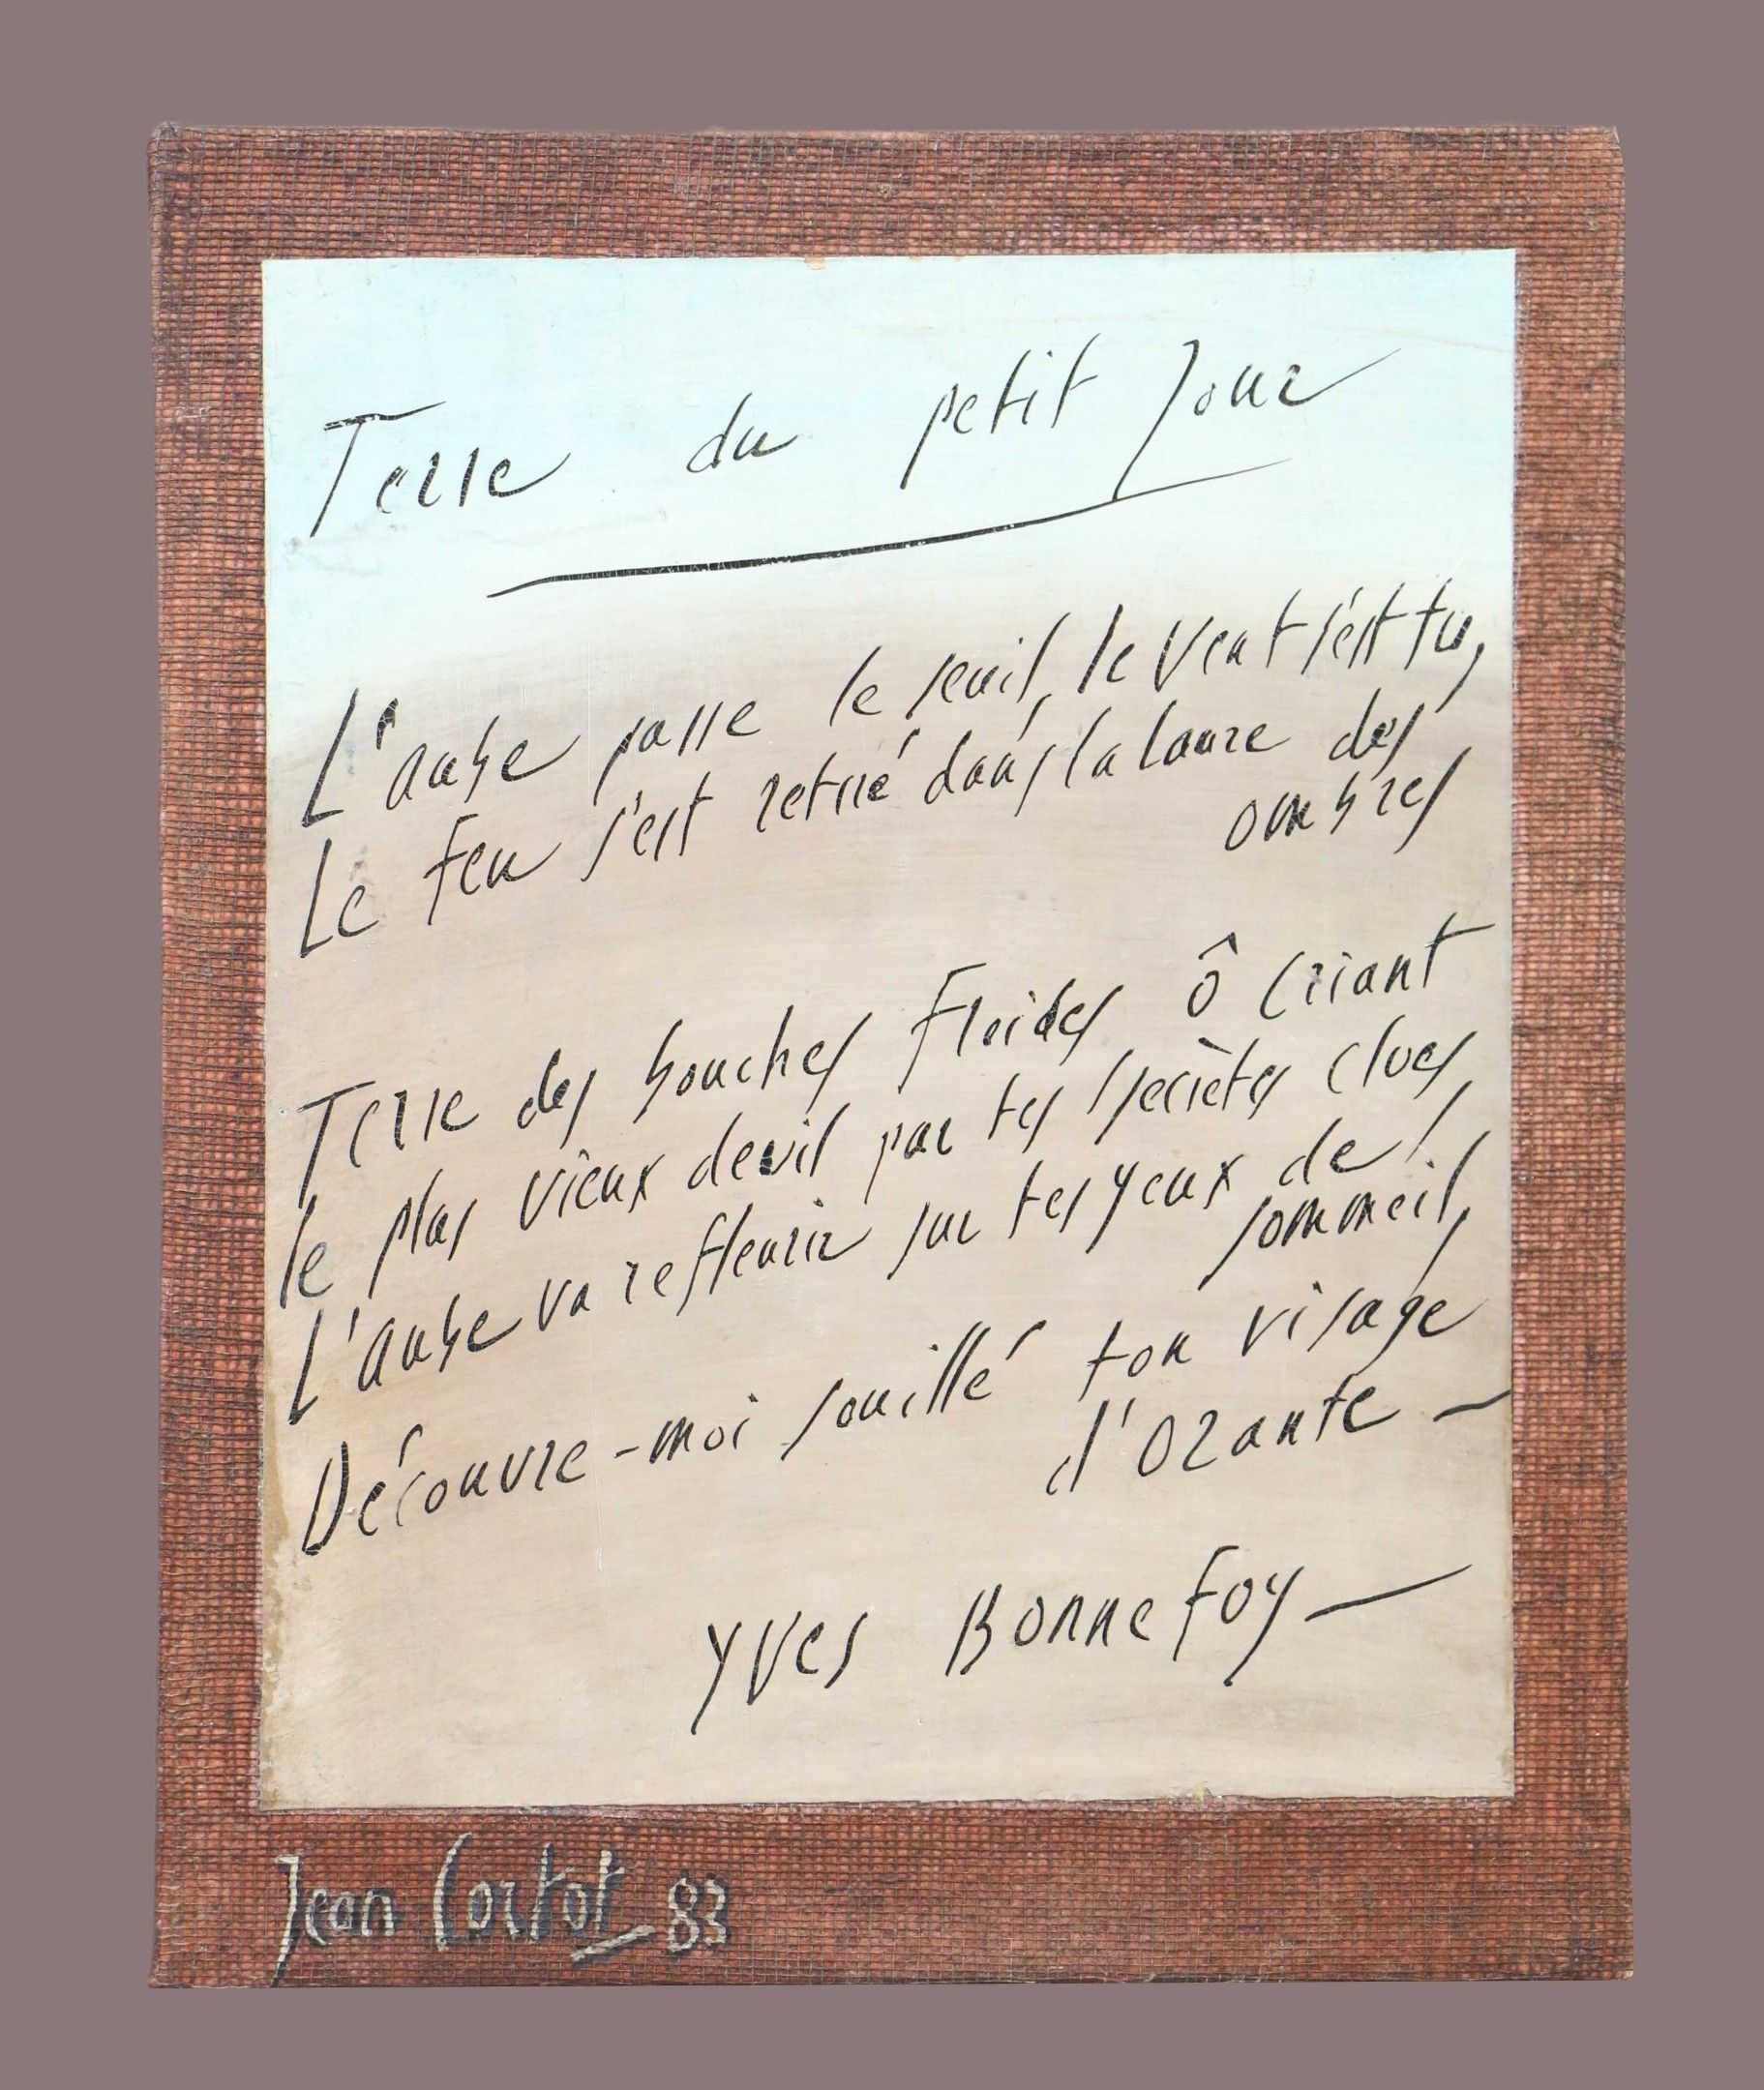 Terre du petit jour
L'aube passe le seuil, le vent s'est tu,
Le feu s'est retiré dans la laure des
ombres
Terre des bouches froides ô criant
le plus vieux deuil par tes secrètes clues
L'aube va refleurir sur tes yeux de
sommeil,
Découvre-moi souillé ton visage
d'orante —
Yves Bonnefoy —
Jean Cortot 83